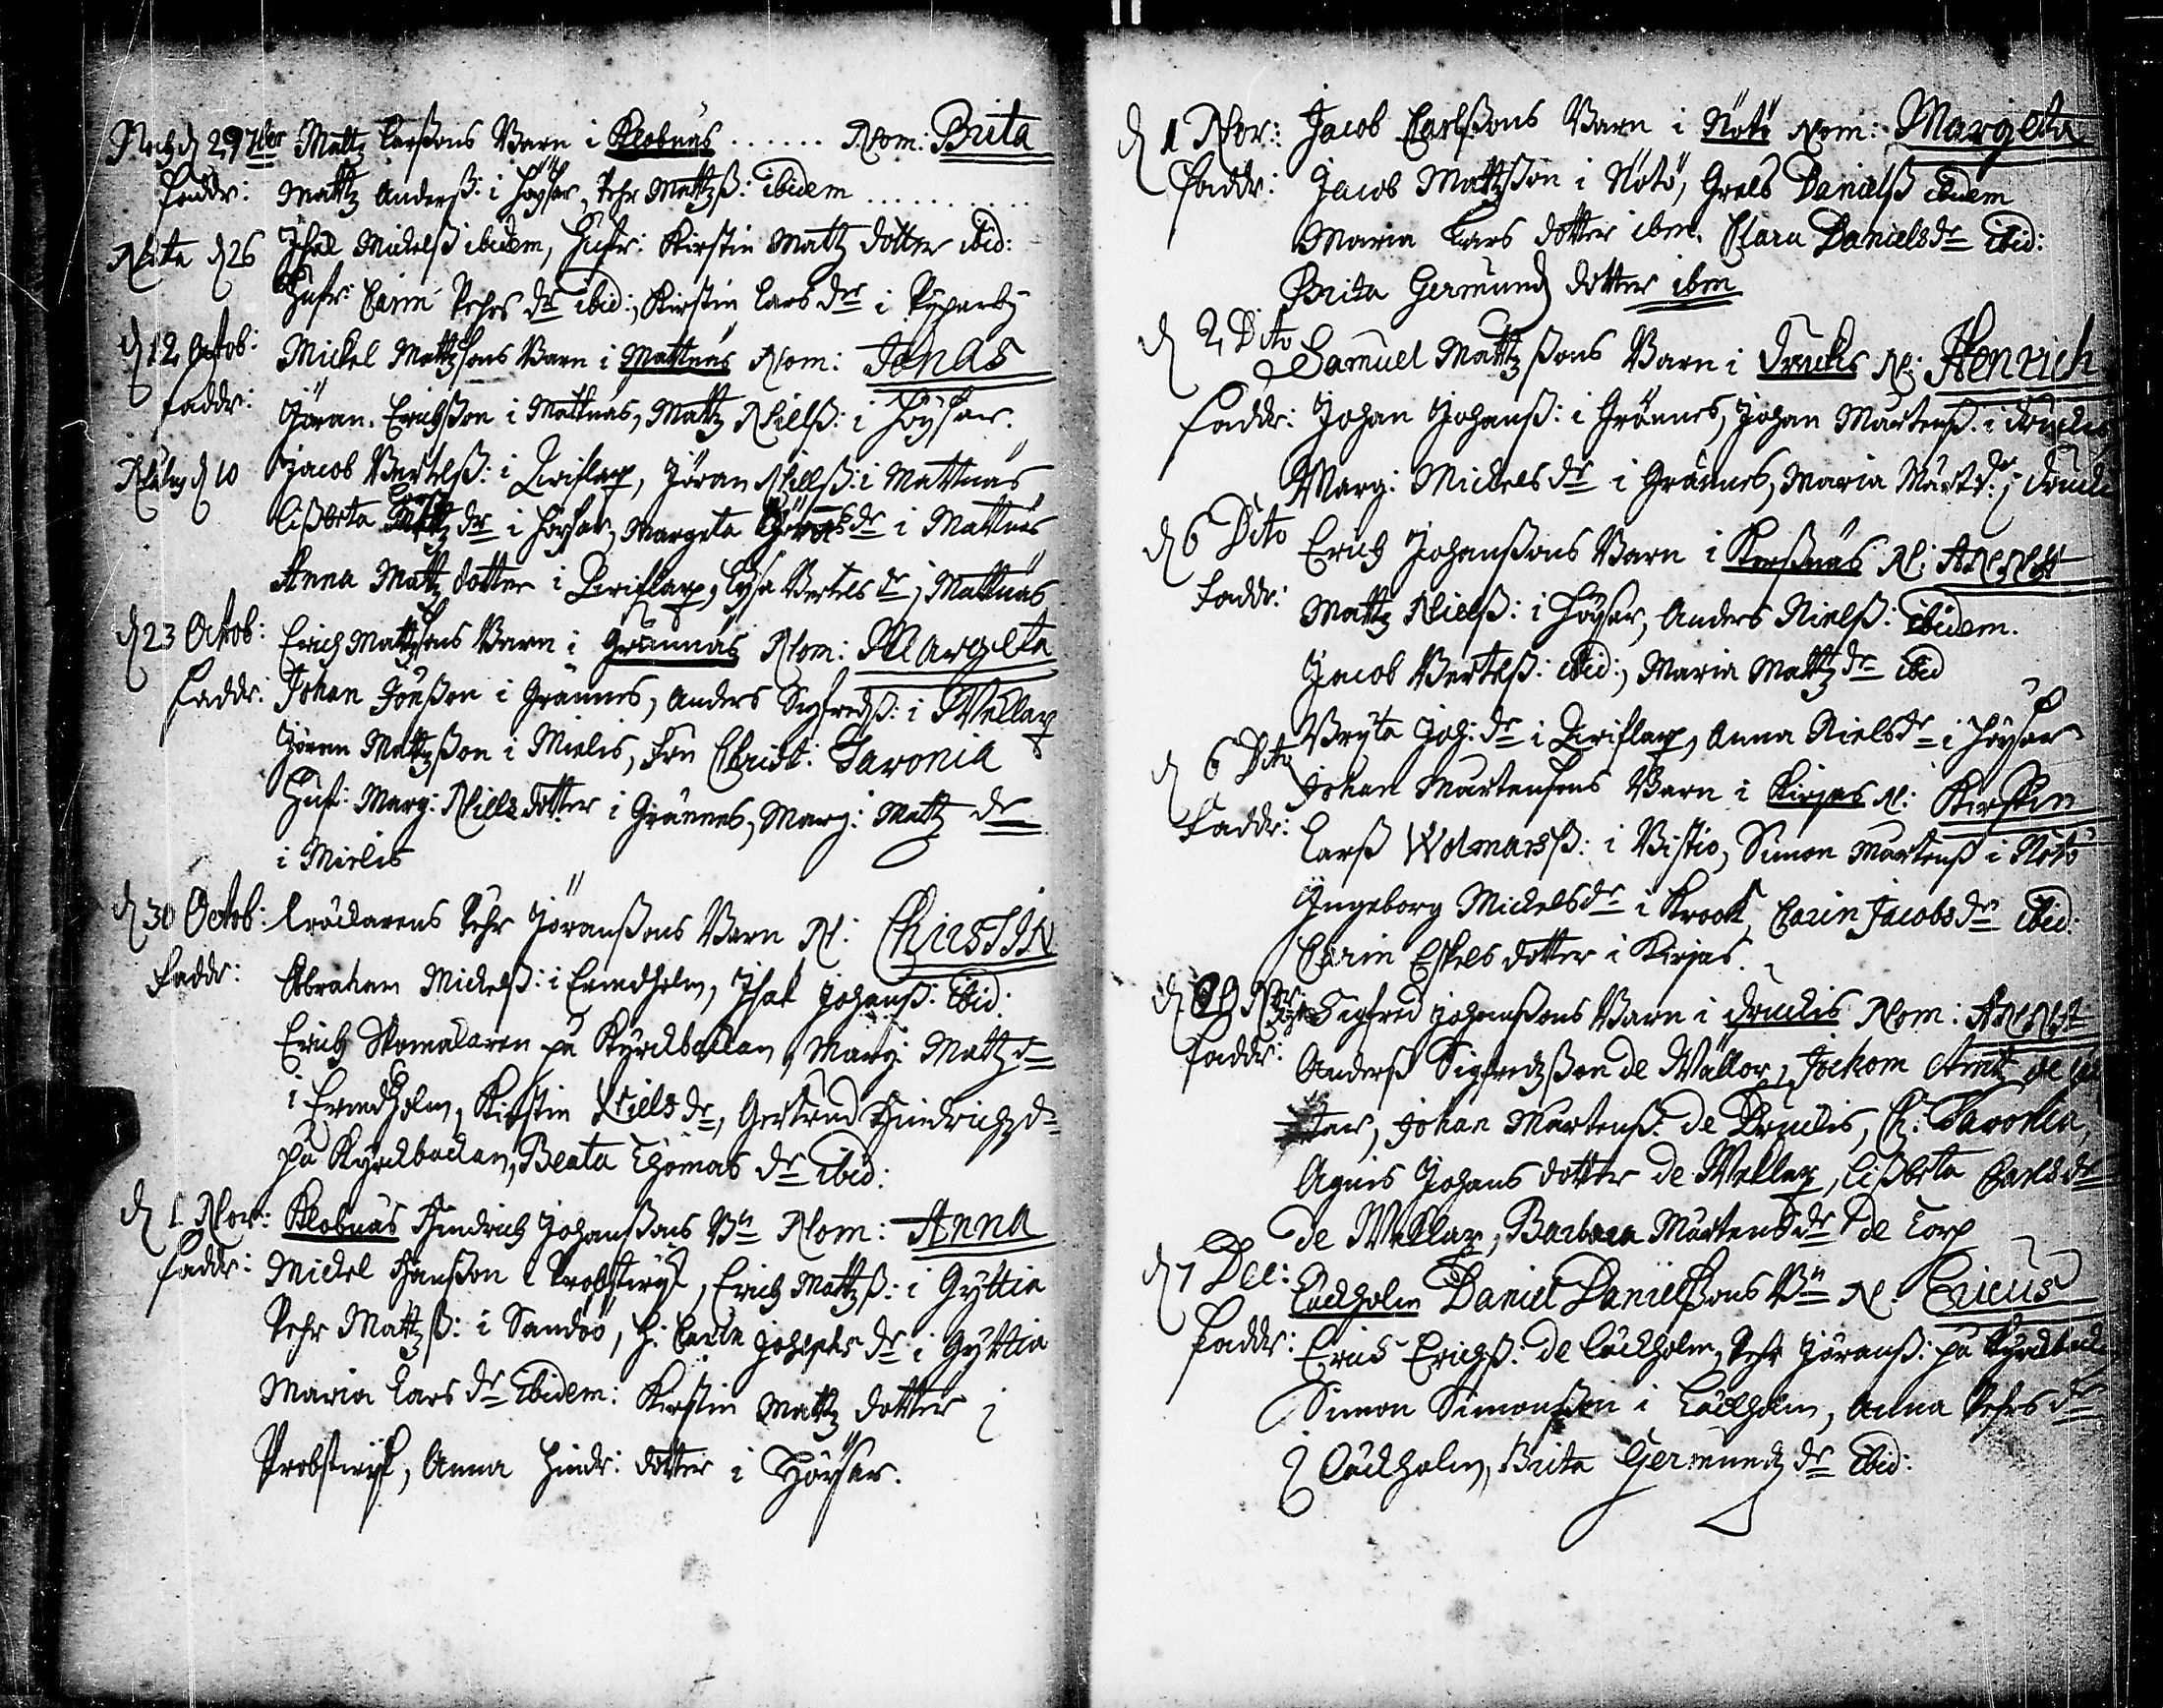 d 29 7ber Mattz Larssons Barn i Klobnäs ...... Nom: Brita
Faddr: Mattz Anderss: i Höysar, Pehr Mattzss: ibidem ...........
Nata d 26 Ihal Mickelss ibidem, Hustr: Kirstin Mattz dotter ibid:
Hustr: Carin Pehrs dr ibid:, Kirstin Lars dr i
d 12 Octob: Mickel Mattzsons Barn i Mattnäs Nom: Jonas
Faddr: Jöran Erichsson i Mattnäs, Mattz Nilss: i Höysar.
d 10 Jacob Bertelss: i Lirislax, Jöran Nilss: i Mattnäs
Lissbeta dr i Höysar, Margeta dr i Mattnäs
Anna Mattz dotter i Lirislax, Lysa Bertels dr i Mattnäs
d 23 Octob: Erich Mattzsons Barn i Grännäs Nom: Margeta
Faddr: Johan Jönsson i Grännäs, Anders Sigfredss: i Wellar
Jöran Mattzsson i Mielis, Fru Christ: Tavonia
Hust: Marg: Niels dotter i Grännäs, Marg: Mattz dr
i Mielis
d 30 Octob: Pehr Jöranssons Barn N: Christin
Faddr: Abraham Mickelss: i Ernholm, Isak Johanss: ibid:
Erich Skomakaren på Kyrckbackan, Marg: Mattz dr
i Ernholm, Kirstin Niels dr, Gertrud Hindrichz dr
på Kyrckbackan, Beata Thomas dr ibid:
d 1 Nov: Klobnäs Hindrich Johanssons Bn Nom: Anna
Faddr: Mickel Hansson i Probstwijk, Erich Mattzss: i Gyttia
Pehr Mattzss: i Sandöö, H: Carin Josephs dr i Gyttia
Maria Lars dr ibidem: Kirstin Mattz dotter i
Probstwijk, Anna Hindr: dotter i Höysar.
d 1 Nov: Jacob Carlssons Barn i Nötö Nom: Margeta
Faddr: Jacob Mattsson i Nötö, Grels Danielss ibidem
Maria Lars dotter ibm. Clara Daniels dr ibid:
Brita Germundz dotter ibm
d 2 Dito Samuel Mattzssons Barn i Druckis N: Henrich
Faddr: Johan Johanss: i Grännäs, Johan Mårtenss: i Druckis
Marg: Mickels dr i Grännäs, Maria Mårt dr: i
d 6 Dito Erich Johanssons Barn i Korssnäs N: Anna
Faddr: Mattz Nielss: i Höysar, Anders Nielss: ibidem.
Jacob Bertelss: ibid:, Maria Mattz dr ibid
Bryta Joh: dr i Lirislax, Anna Niels dr i Höysar
d 6 Dito Johan Mårtensons Barn i Kirjas N: Kirstin
Faddr: Larss Wolmarss: i Bistio, Simon Mårtenss i Nötö
Ingeborg Mickels dr i Krook, Carin Jacobs dr ibid:
Carin Eskels dotter i Kirjas.
Sigfred Johanssons Barn i Druckis Nom: Anna
Faddr: Anderss Sigfredzsson de Wällor, Jochom
Johan Mårtenss: de Druckis, Ch: Tavonia,
Agnis Johans dotter de Wellar, Lissbeta Carls dr
de Wellar, Barbara Mårtens dr de Torp
d 7 Dec: Lockholm Daniel Danielssons Bn N: Ericus
Faddr: Erich Erichss: de Lockholm, Pehr Jöranss: på
Simon Simonsson i Lockholm, Anna Pehrs dr
i Lockholm, Brita Germundz dr ibid: